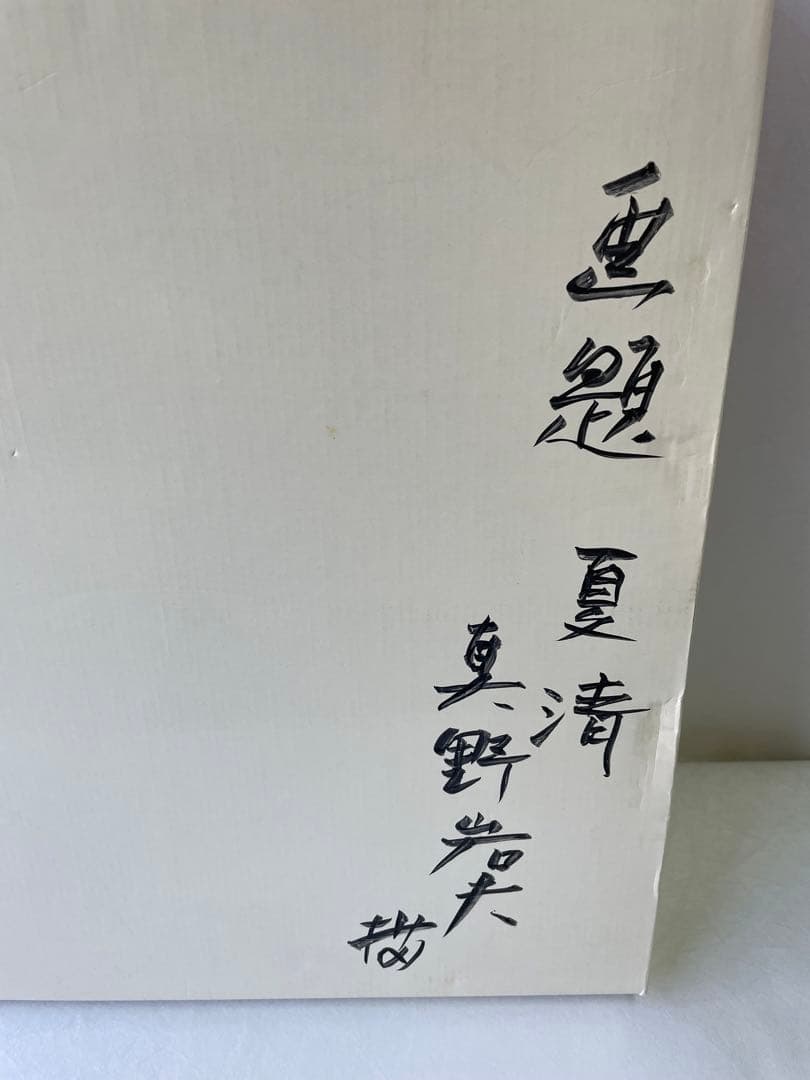 画題 夏清
真野岩夫
描